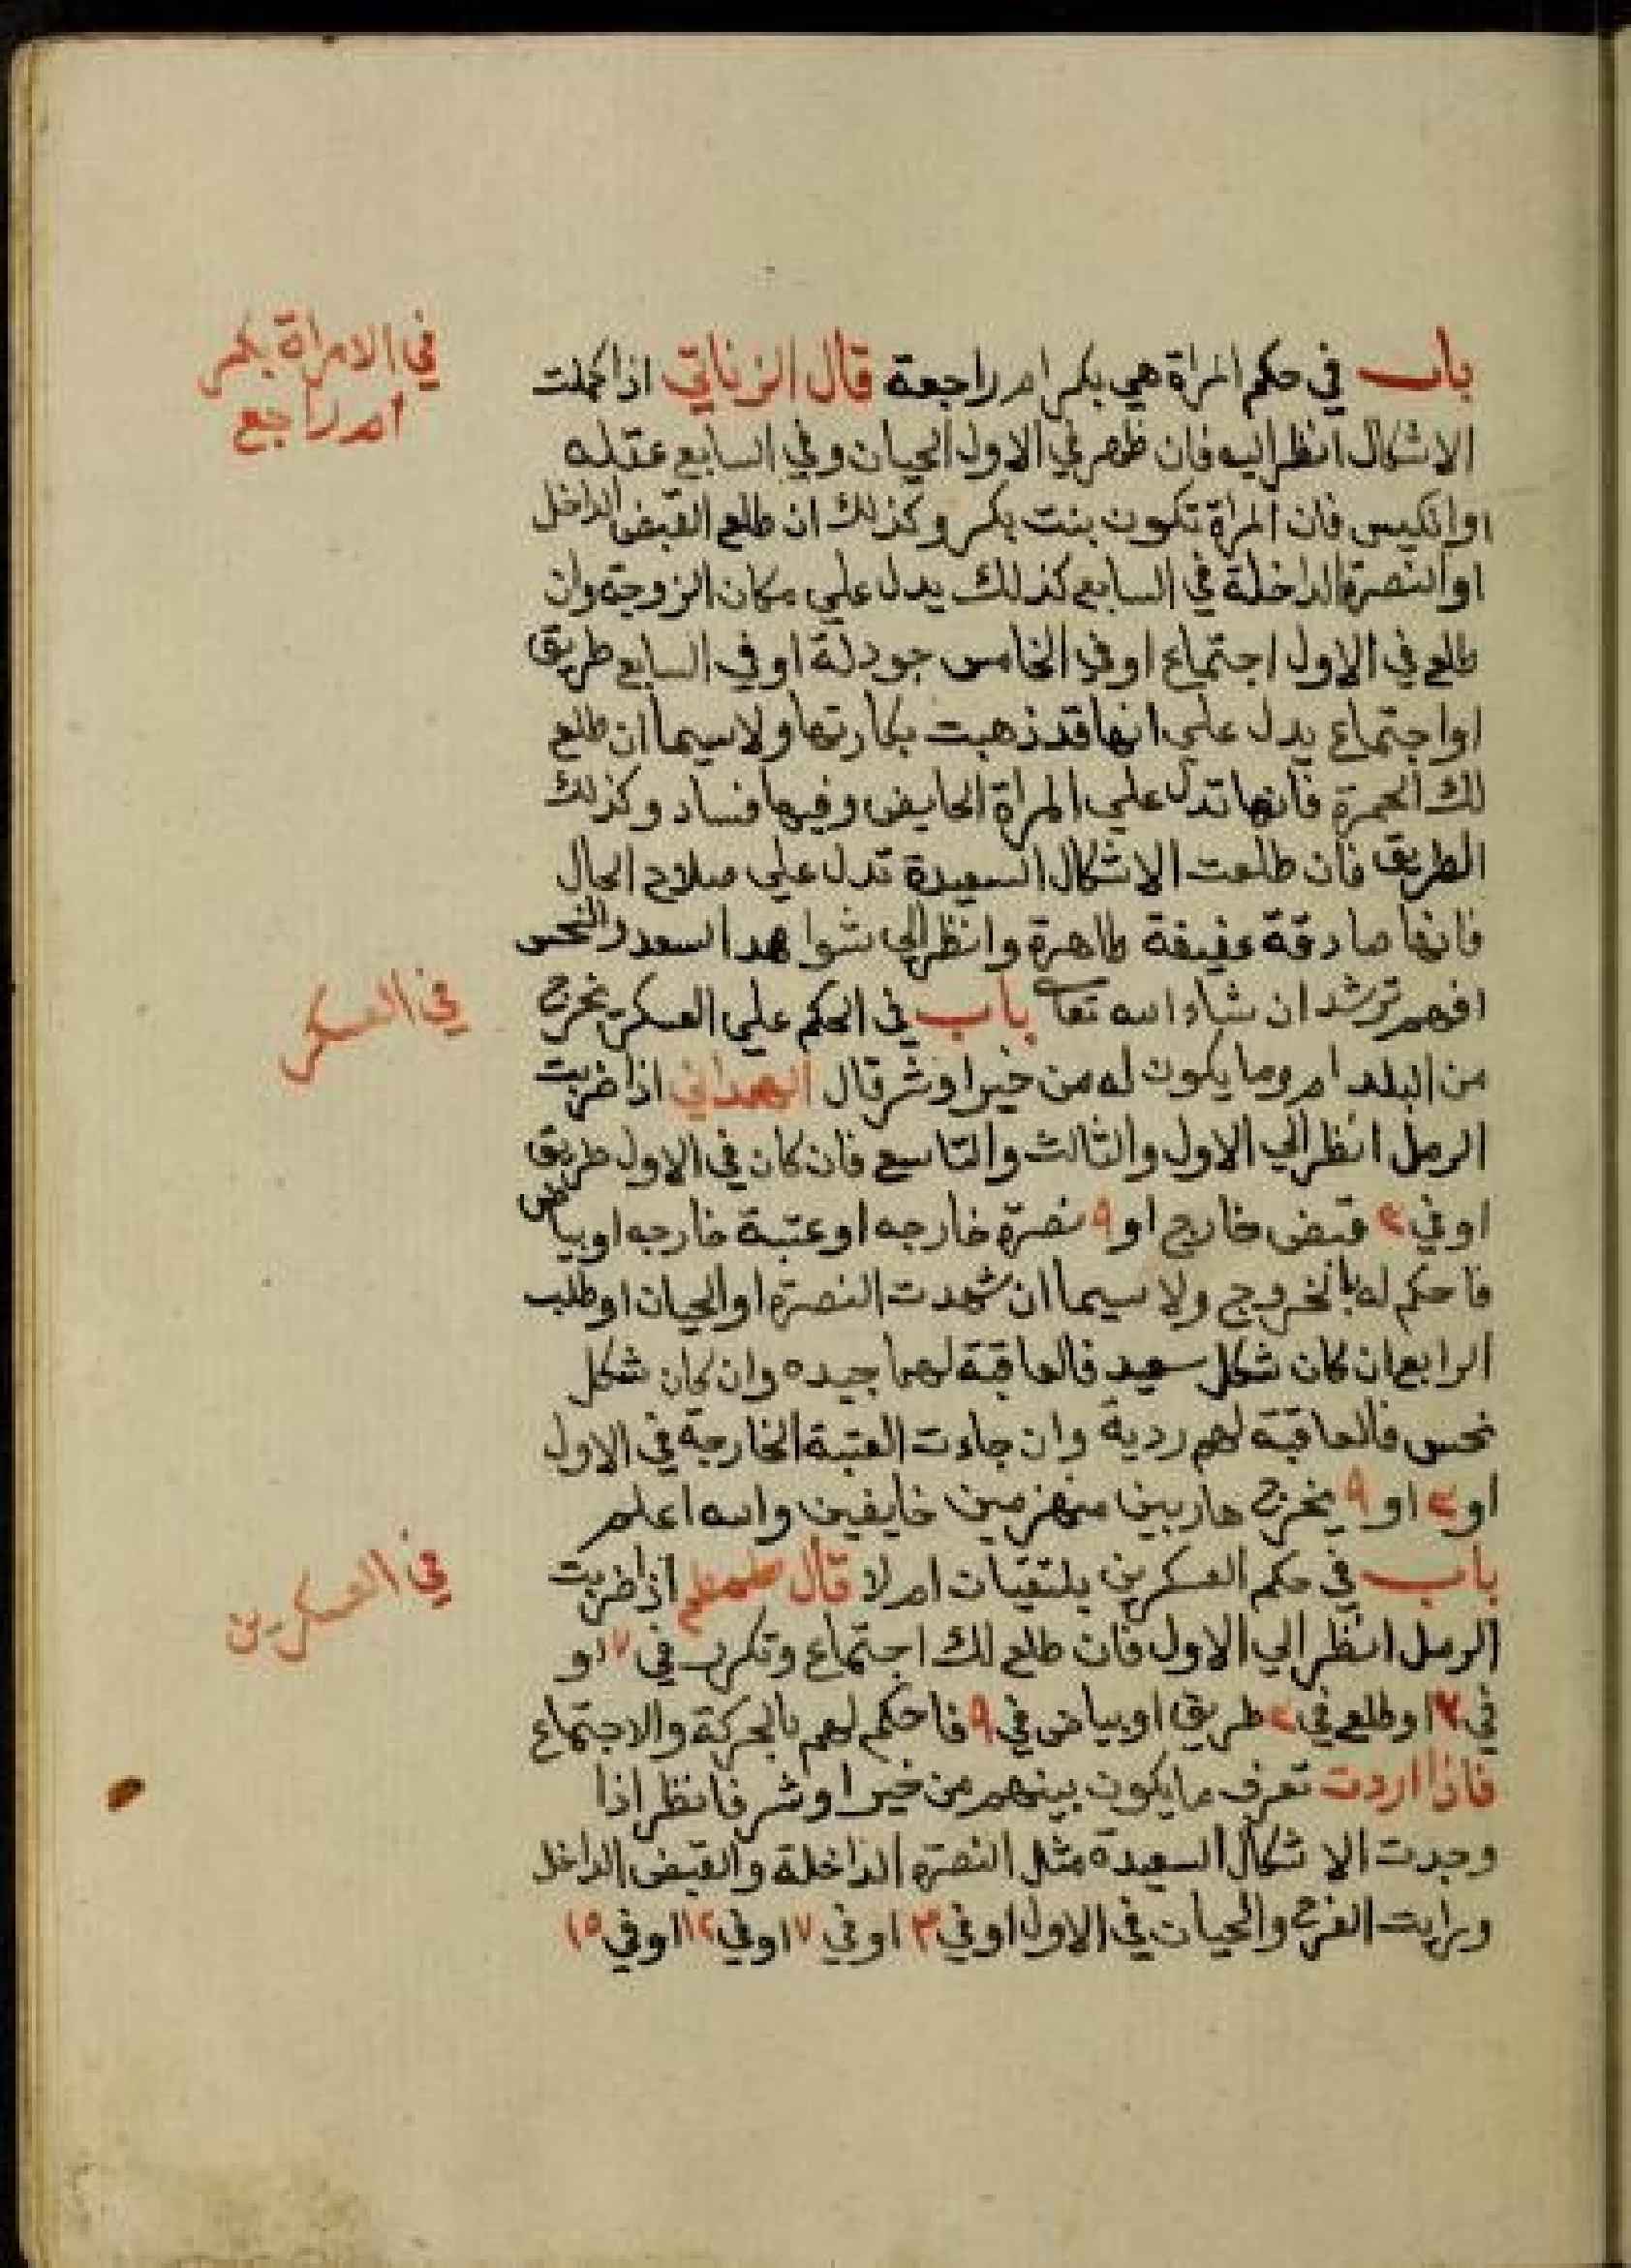 في الامراة بكر
ام راجع
باب في حكم المراة هي بكر ام راجعة قال الزناتي اذا كملت
الاشكال انظر اليه فان ظهر في الاول الحيان وفي السابع عقله
اوانكيس فان المراة تكون بنت بكر وكذلك ان طلع القبض الداخل
او النصرة الداخلة في السابع كذلك يدل علي مكان الزوجة وان
طلع في الاول اجتماع او في الخامس جودلة او في السابع طريق
او اجتماع يدل علي انها قد ذهبت بكارتها ولاسيما ان طلع
لك الحمرة فانها تدل علي المراة الحايض وفيها فساد وكذلك
الطريق فان طلعت الاشكال السعيدة تدل علي صلاح الحال
فانها صادقة عفيفة طاهرة وانظر الي شواهد السعد والنحس
افهم ترشد ان شاء الله تعا باب في الحكم علي العسكر يخرج
في العسكر
من البلد ام وما يكون له من خير او شر قال الهمداني اذا ضربت
الرمل انظر الي الاول والثالث والتاسع فان كان في الاول طريق
او في ٣ قبض خارج او ٩ نصرة خارجه او عتبة خارجه او بياض
فاحكم له بالخروج ولا سيما ان شهدت النصرة او الحيان او طلب
الرابع ان كان شكل سعيد فالعاقبة لهما جيده وان كان شكل
نحس فالعاقبة لهم ردية وان جاءت العتبة الخارجة في الاول
او ٣ او ٩ يخرج هاربين منهزمين خايفين والله اعلم
باب في حكم العسكرين يلتقيان ام لا قال طمطم اذا ضربت
في العسكرين
الرمل انظر الي الاول فان طلع لك اجتماع وتكرر في ٧ او
في ٢ او طلع في ٣ طريق او بياض في ٩ فاحكم لهم بالحركة والاجتماع
فاذا اردت تعرف ما يكون بينهم من خير او شر فانظر اذا
وجدت الاشكال السعيدة مثل النصرة الداخلة والقبض الداخل
ورايت الفرح والحيان في الاول او في ٣ او في ٧ او في ١٢ او في ١٥